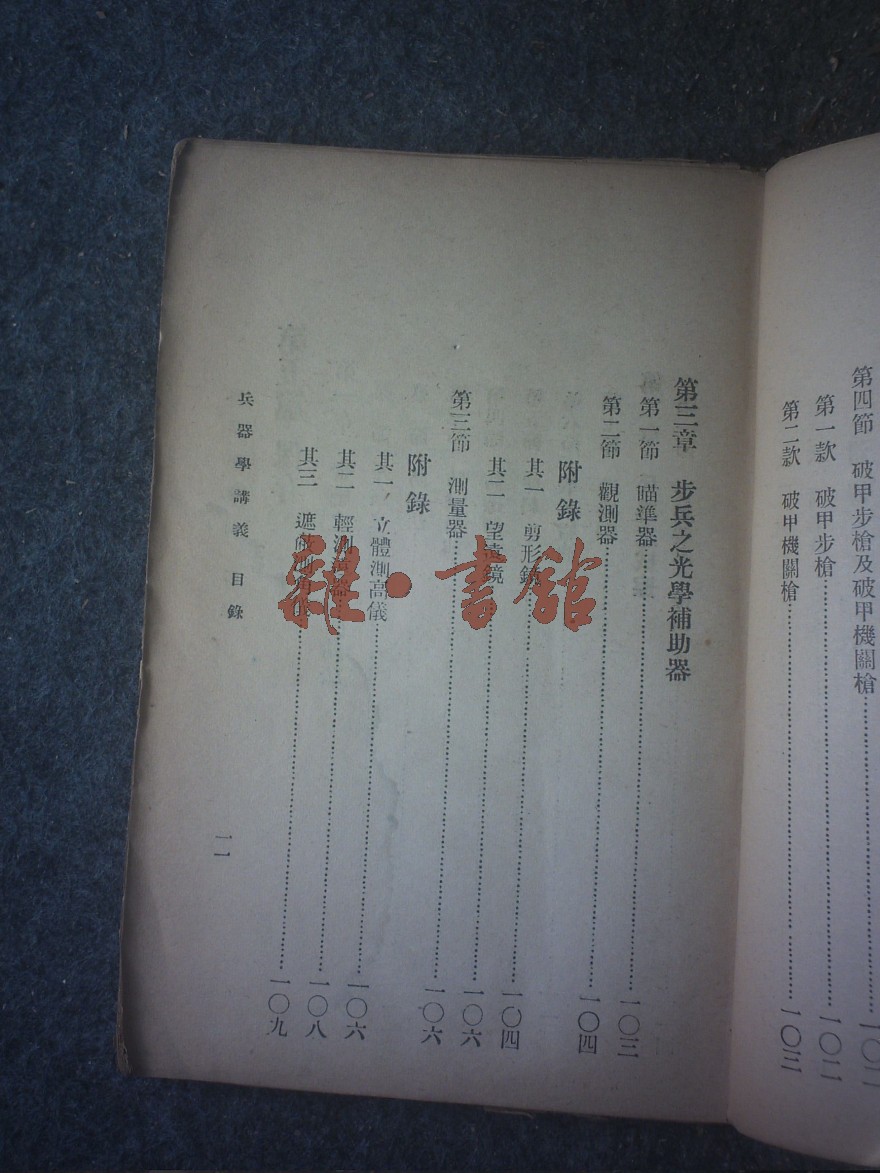 第四節 破甲步槍及破甲機關槍……一〇二
第一款 破甲步槍……一〇二
第二款 破甲機關槍……一〇三
第三章 步兵之光學補助器
第一節 瞄準器……一〇三
第二節 觀測器……一〇四
附錄
其一 剪形鏡……一〇四
其二 望遠鏡……一〇六
第三節 測量器……一〇六
附錄
其一 立體測高儀……一〇六
其二 輕測 器……一〇八
其三 遮 測 儀……一〇九
兵器學講義 目錄
一一
雜·書館